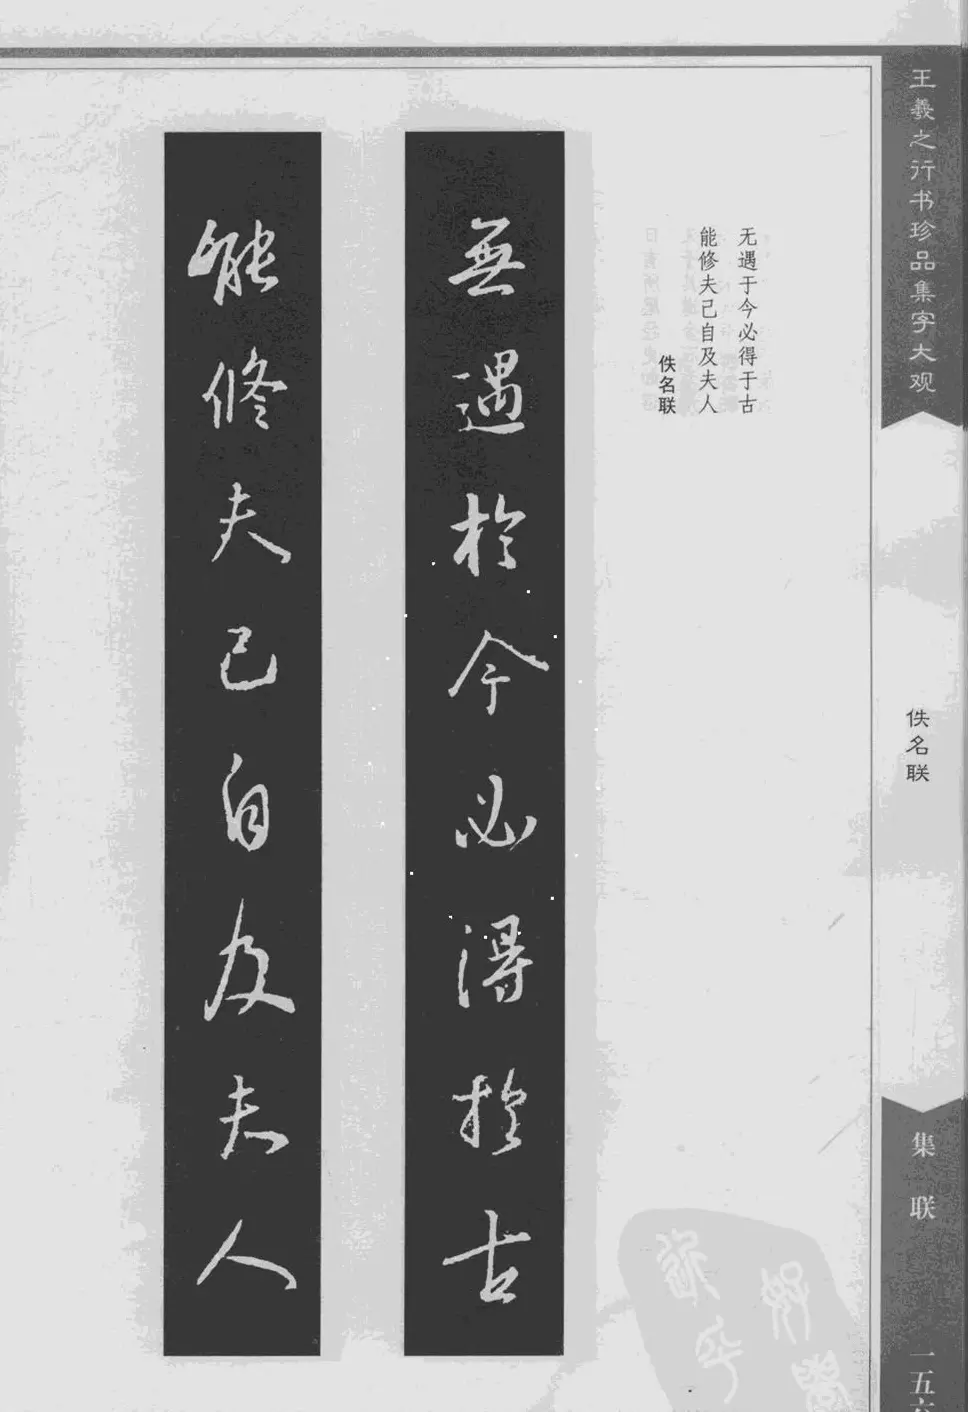 王羲之行书珍品集字大观
佚名联
集联
一五六
无遇于今必得于古
能修夫己自及夫人
佚名联
無遇於今必得於古
能修夫己自及夫人